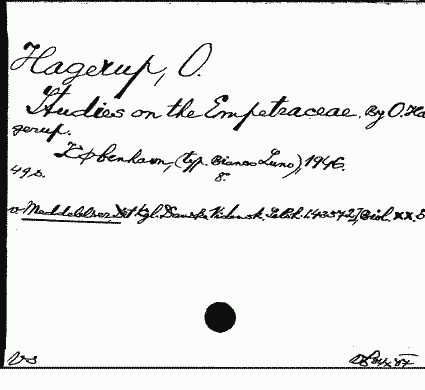 Hagerup, O.
Studies on the Empetraceae. By O. Ha
gerup.
København, (typ. Bianco Luno), 1946.
49 s. 8.
Meddelelser, Det Kgl. Danske Vidensk. Selsk. Biol. XX.5
VS